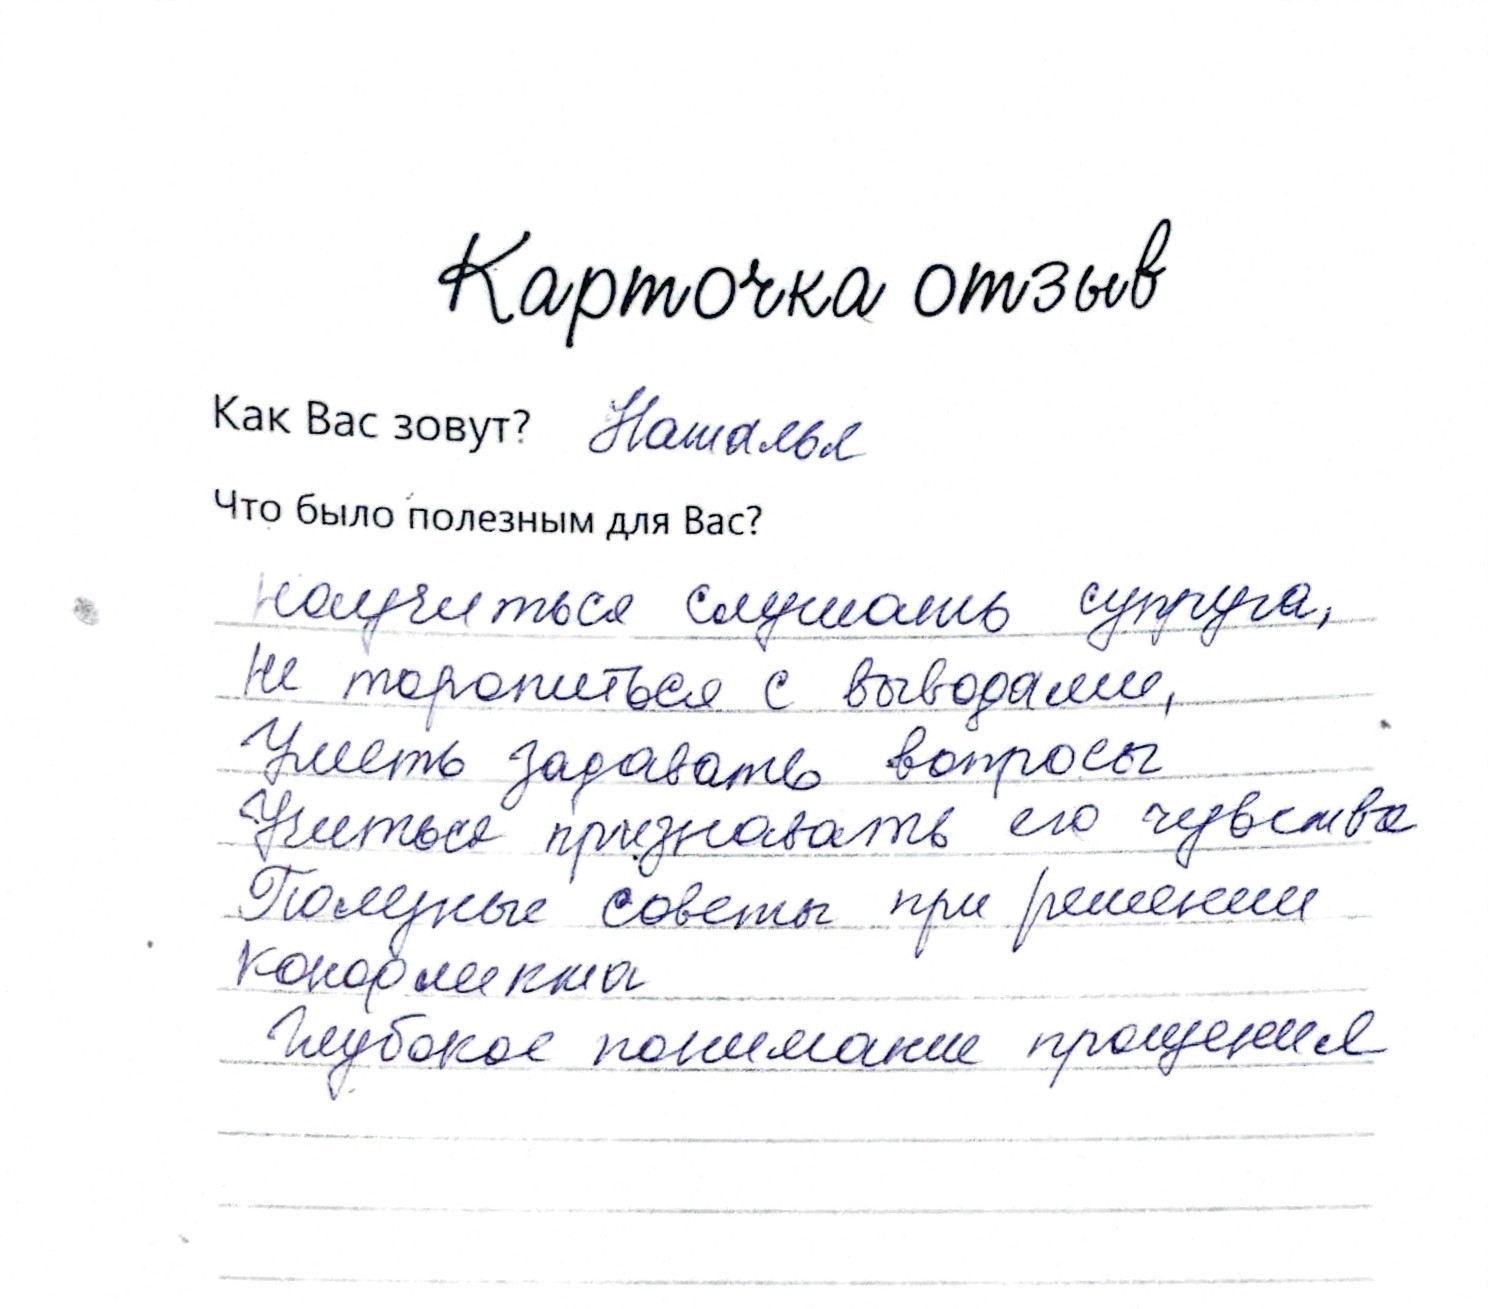 Карточка отзыв
Как Вас зовут? Наталья
Что было полезным для Вас?
научиться слушать супруга,
не торопиться с выводами,
Уметь задавать вопросы
Учиться признавать его чувства
Полезные советы при решении
конфликта
Глубокое понимание прощения